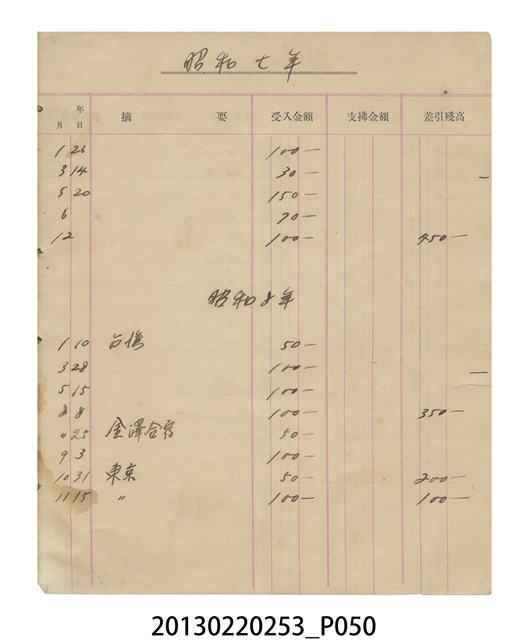 昭和七年
年
月 日 摘要 受入金額 支拂金額 差引殘高
1 26 100—
3 14 30—
5 20 150—
6 70—
12 100— 450—
昭和8年
1 10 50—
3 28 100—
5 15 100—
8 8 100— 350—
〃 25 金澤合宿 50—
9 3 100—
10 31 東京 50— 200—
11 15 〃 100— 100—
20130220253_P050